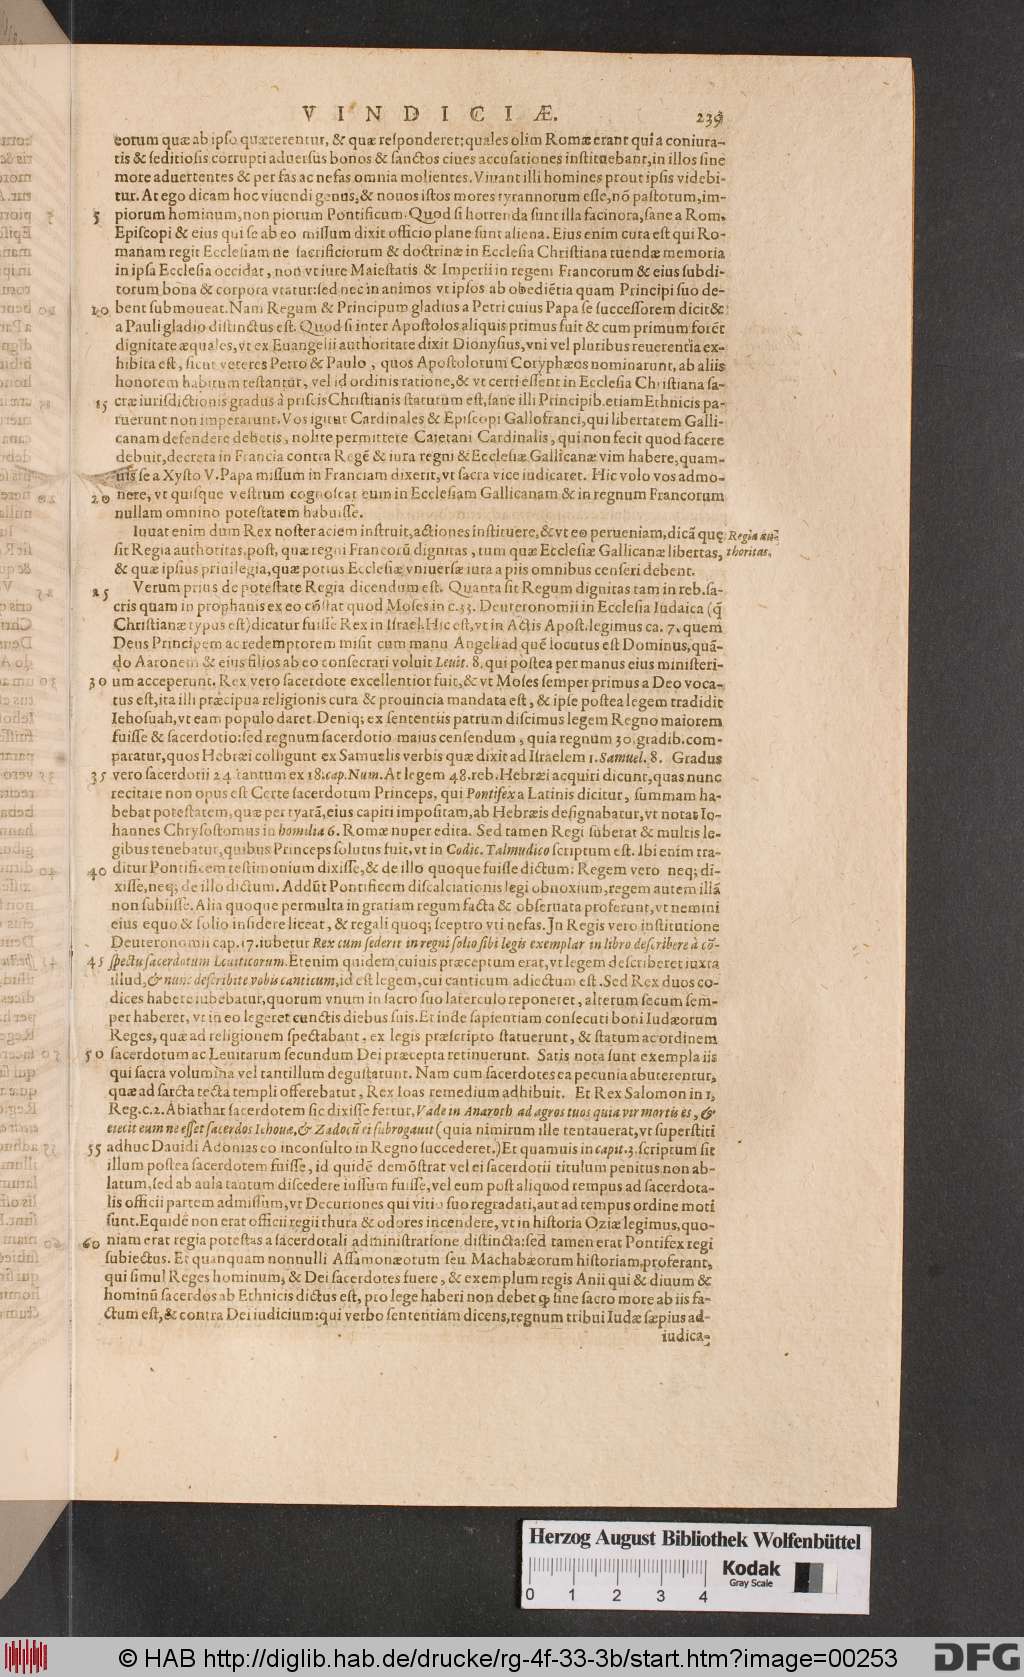 VINDICIÆ. 239
eorum quæ ab ipso quærerentur, & quæ responderet: quales olim Romæ erant qui a coniura-
tis & seditiosis corrupti aduersus bonos & sanctos ciues accusationes instituebant, in illos sine
more aduertentes & per fas ac nefas omnia molientes. Viuant illi homines prout ipsis videbi-
tur. At ego dicam hoc viuendi genus, & nouos istos mores tyrannorum esse, nõ pastorum, im-
5 piorum hominum, non piorum Pontificum. Quod si horrenda sunt illa facinora, sane a Rom.
Episcopi & eius qui se ab eo missum dixit officio plane sunt aliena. Eius enim cura est qui Ro-
manam regit Ecclesiam ne sacrificiorum & doctrinæ in Ecclesia Christiana tuendæ memoria
in ipsa Ecclesia occidat, non vt iure Maiestatis & Imperii in regem Francorum & eius subdi-
torum bona & corpora vtatur: sed nec in animos vt ipsos ab obediẽtia quam Principi suo de-
10 bent submoueat. Nam Regum & Principum gladius a Petri cuius Papa se successorem dicit &
a Pauli gladio distinctus est. Quod si inter Apostolos aliquis primus fuit & cum primum forẽt
dignitate æquales, vt ex Euangelii authoritate dixit Dionysius, vni vel pluribus reuerentia ex-
hibita est, sicut veteres Petro & Paulo, quos Apostolorum Coryphæos nominarunt, ab aliis
honorem habitum testantur, vel id ordinis ratione, & vt certi essent in Ecclesia Christiana sa-
15 cræ iurisdictionis gradus à priscis Christianis statutum est, sane illi Principib. etiam Ethnicis pa-
ruerunt non imperarunt. Vos igitur Cardinales & Episcopi Gallofranci, qui libertatem Galli-
canam defendere debetis, nolite permittere Caietani Cardinalis, qui non fecit quod facere
debuit, decreta in Francia contra Regẽ & iura regni & Ecclesiæ Gallicanæ vim habere, quam-
uis se a Xysto V. Papa missum in Franciam dixerit, vt sacra vice iudicaret. Hic volo vos admo-
20 nere, vt quisque vestrum cognoscat eum in Ecclesiam Gallicanam & in regnum Francorum
nullam omnino potestatem habuisse.
Iuuat enim dum Rex noster aciem instruit, actiones instituere, & vt eo perueniam, dicã quę
Regia au-
sit Regia authoritas, post, quæ regni Francorũ dignitas, tum quæ Ecclesiæ Gallicanæ libertas,
thoritas.
& quæ ipsius priuilegia, quæ potius Ecclesiæ vniuersæ iura a piis omnibus censeri debent.
25 Verum prius de potestate Regia dicendum est. Quanta sit Regum dignitas tam in reb. sa-
cris quam in prophanis ex eo cõstat quod Moses in c. 33. Deuteronomii in Ecclesia Iudaica (q̃
Christianæ typus est) dicatur fuisse Rex in Israel. Hic est, vt in Actis Apost. legimus ca. 7. quem
Deus Principem ac redemptorem misit cum manu Angeli ad quẽ locutus est Dominus, quã-
do Aaronem & eius filios ab eo consecrari voluit Leuit. 8. qui postea per manus eius ministeri-
30 um acceperunt. Rex vero sacerdote excellentior fuit, & vt Moses semper primus a Deo voca-
tus est, ita illi præcipua religionis cura & prouincia mandata est, & ipse postea legem tradidit
Iehosuah, vt eam populo daret. Deniq; ex sententiis patrum discimus legem Regno maiorem
fuisse & sacerdotio: sed regnum sacerdotio maius censendum, quia regnum 30. gradib. com-
paratur, quos Hebræi colligunt ex Samuelis verbis quæ dixit ad Israelem 1. Samuel. 8. Gradus
35 vero sacerdotii 24 tantum ex 18. cap. Num. At legem 48. reb. Hebræi acquiri dicunt, quas nunc
recitare non opus est Certe sacerdotum Princeps, qui Pontifex a Latinis dicitur, summam ha-
bebat potestatem, quæ per tyarã, eius capiti impositam, ab Hebræis designabatur, vt notat Io-
hannes Chrysostomus in homilia 6. Romæ nuper edita. Sed tamen Regi suberat & multis le-
gibus tenebatur, quibus Princeps solutus fuit, vt in Codic. Talmudico scriptum est. Ibi enim tra-
40 ditur Pontificem testimonium dixisse, & de illo quoque fuisse dictum: Regem vero neq; di-
xisse, neq; de illo dictum. Addũt Pontificem discalciationis legi obnoxium, regem autem illã
non subiisse. Alia quoque permulta in gratiam regum facta & obseruata proferunt, vt nemini
eius equo & solio insidere liceat, & regali quoq; sceptro vti nefas. In Regis vero institutione
Deuteronomii cap. 17. iubetur Rex cum sederit in regni solio sibi legis exemplar in libro describere à cõ-
45 spectu sacerdotum Leuiticorum. Etenim quidem cuiuis præceptum erat, vt legem describeret iuxta
illud, & nunc describite vobis canticum, id est legem, cui canticum adiectum est. Sed Rex duos co-
dices habere iubebatur, quorum vnum in sacro suo laterculo reponeret, alterum secum sem-
per haberet, vt in eo legeret cunctis diebus suis. Et inde sapientiam consecuti boni Iudæorum
Reges, quæ ad religionem spectabant, ex legis præscripto statuerunt, & statum ac ordinem
50 sacerdotum ac Leuitarum secundum Dei præcepta retinuerunt. Satis nota sunt exempla iis
qui sacra volumina vel tantillum degustarunt. Nam cum sacerdotes ea pecunia abuterentur,
quæ ad sarcta tecta templi offerebatur, Rex Ioas remedium adhibuit. Et Rex Salomon in 1,
Reg. c. 2. Abiathar sacerdotem sic dixisse fertur, Vade in Anatoth ad agros tuos quia vir mortis es, &
eiecit eum ne esset sacerdos Iehouæ, & Zadocũ ei subrogauit (quia nimirum ille tentauerat, vt superstiti
55 adhuc Dauidi Adonias eo inconsulto in Regno succederet.) Et quamuis in capit. 3. scriptum sit
illum postea sacerdotem fuisse, id quidẽ demõstrat vel ei sacerdotii titulum penitus non ab-
latum, sed ab aula tantum discedere iussum fuisse, vel eum post aliquod tempus ad sacerdota-
lis officii partem admissum, vt Decuriones qui vitio suo regradati, aut ad tempus ordine moti
sunt. Equidẽ non erat officii regii thura & odores incendere, vt in historia Oziæ legimus, quo-
60 niam erat regia potestas a sacerdotali administratione distincta: sed tamen erat Pontifex regi
subiectus. Et quanquam nonnulli Assamonæorum seu Machabæorum historiam, proferant,
qui simul Reges hominum, & Dei sacerdotes fuere, & exemplum regis Anii qui & diuum &
hominũ sacerdos ab Ethnicis dictus est, pro lege haberi non debet ꝙ sine sacro more ab iis fa-
ctum est, & contra Dei iudicium: qui verbo sententiam dicens, regnum tribui Iudæ sæpius ad-
iudica-
Herzog August Bibliothek Wolfenbüttel
Kodak
Gray Scale
0 1 2 3 4
© HAB http://diglib.hab.de/drucke/rg-4f-33-3b/start.htm?image=00253
DFG